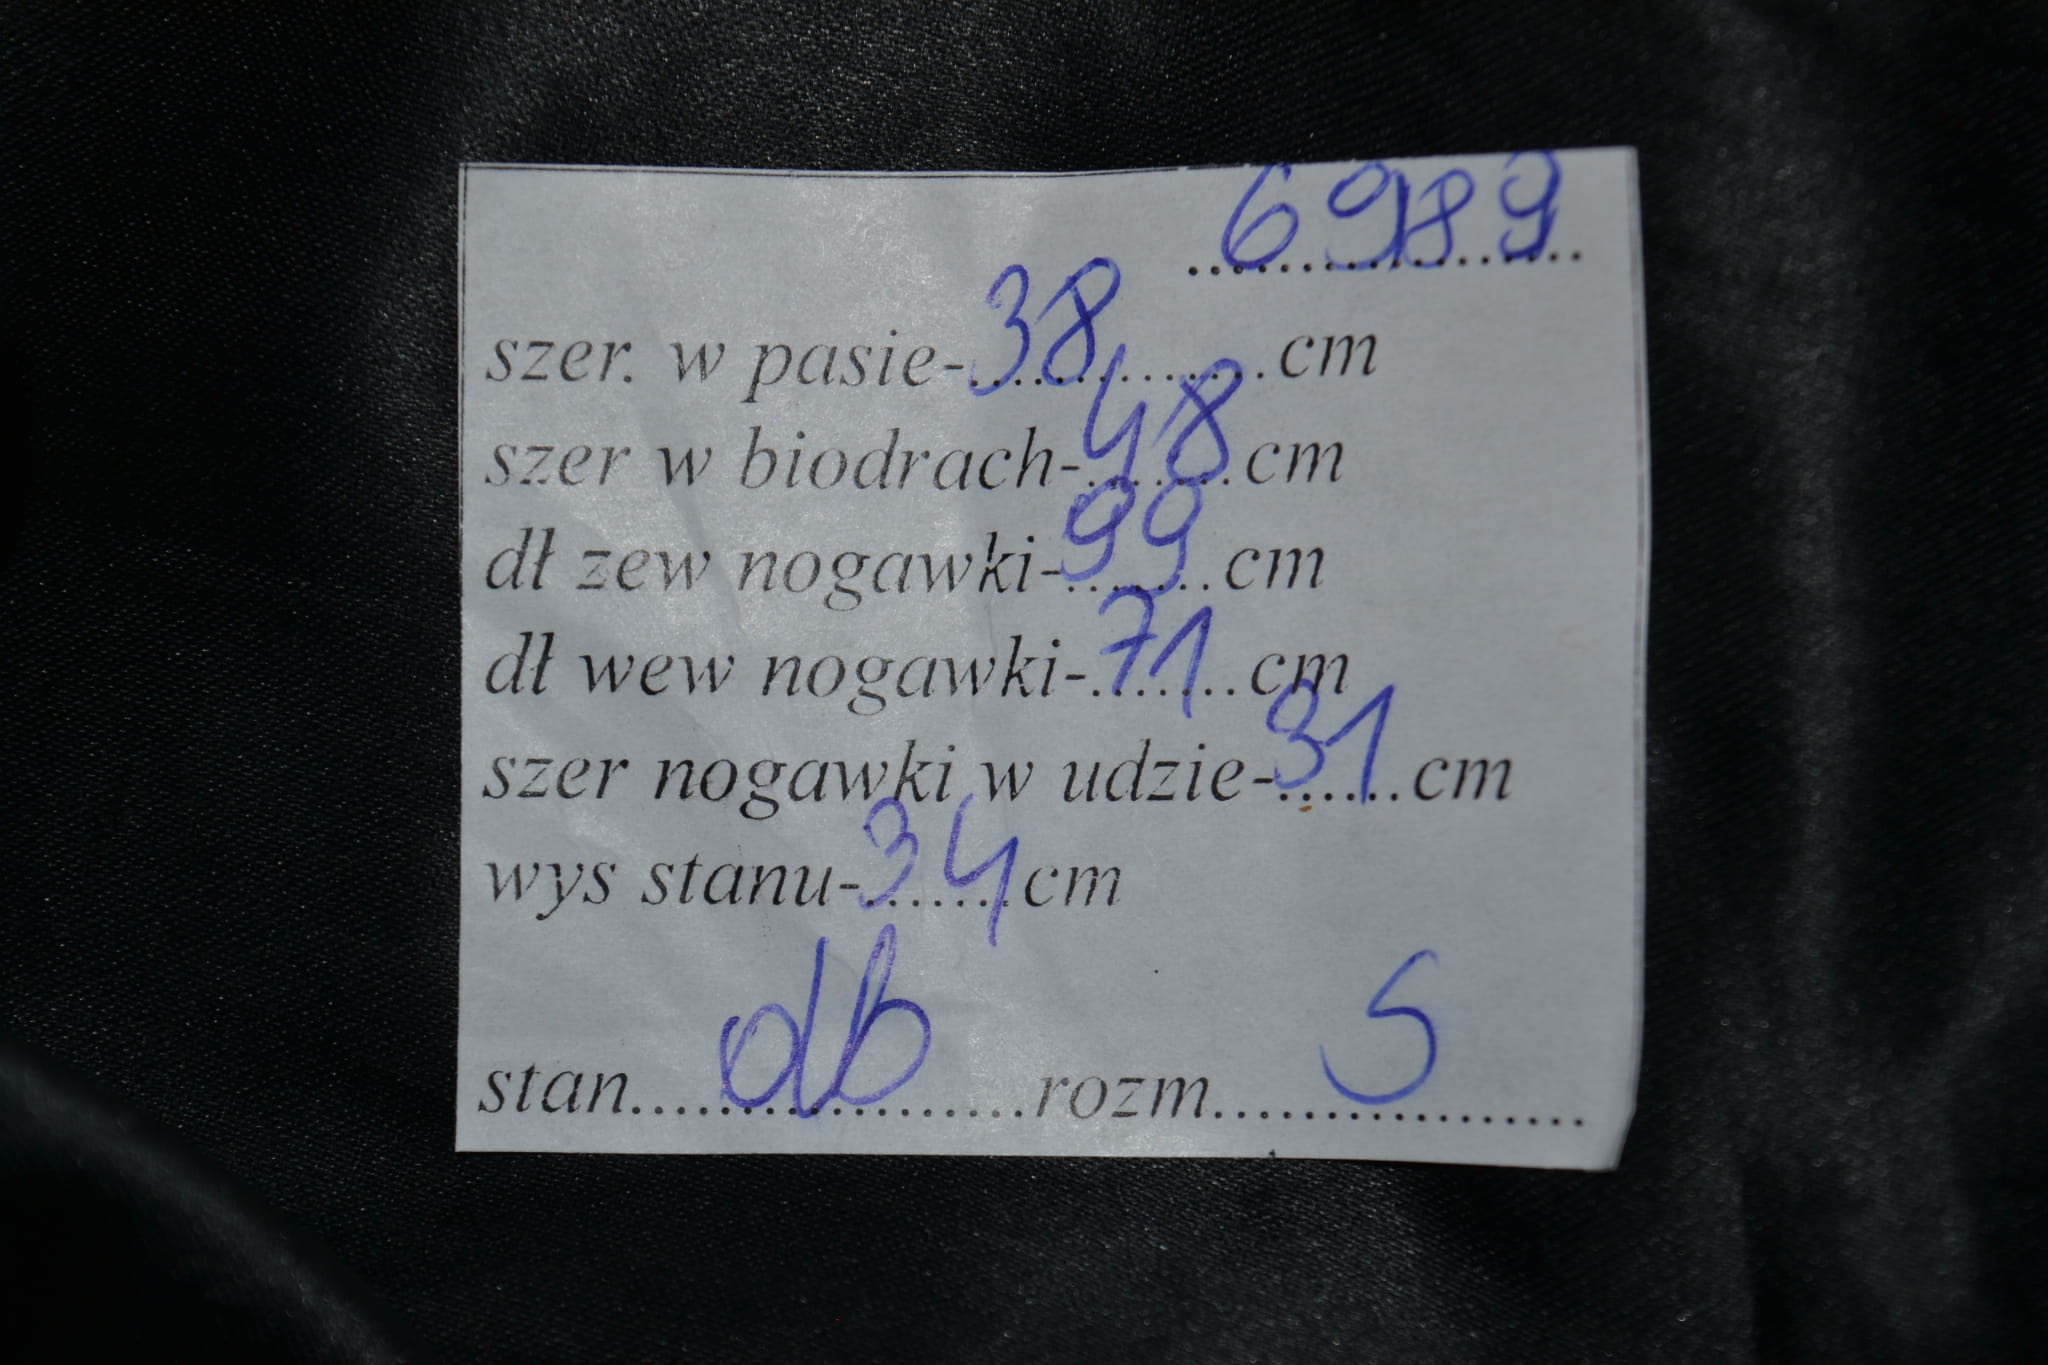 6989
szer. w pasie-38cm
szer w biodrach-48cm
dł zew nogawki-99cm
dł wew nogawki-71cm
szer nogawki w udzie-31cm
wys stanu-34cm
stan....db....rozm....S....